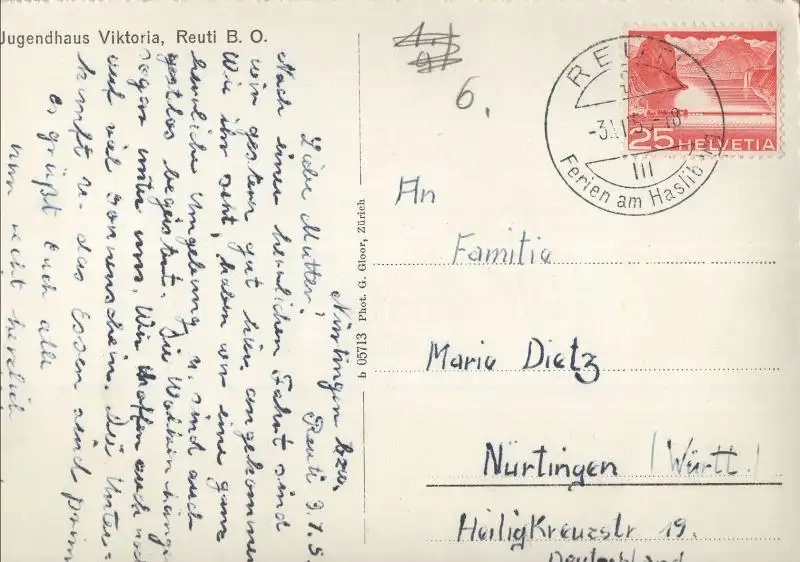 Jugendhaus Viktoria, Reuti B. O.
Nürtingen bzw.
Reuti 3.1.5
Liebe Mutter,
Nach einer herrlichen Fahrt sind
wir gestern gut hier angekommen
Wie ihr seht, haben wir eine ganz
herrliche Umgebung u. sind auch
restlos begeistert. Die Wolken hängen
sogar unter uns. Wir hoffen auch noch
auf viel Sonnenschein. Die Unter-
kunft u. das Essen sind prima
Es grüßt euch alle
nun recht herzlich
b 05713 Phot. G. Gloor, Zürich
6.
REUTI
-3.11.5 -18
III
Ferien am Haslib
25 HELVETIA
An
Familie
Maria Dietz
Nürtingen (Württ.)
Heiligkreuzstr 19.
Deutschland